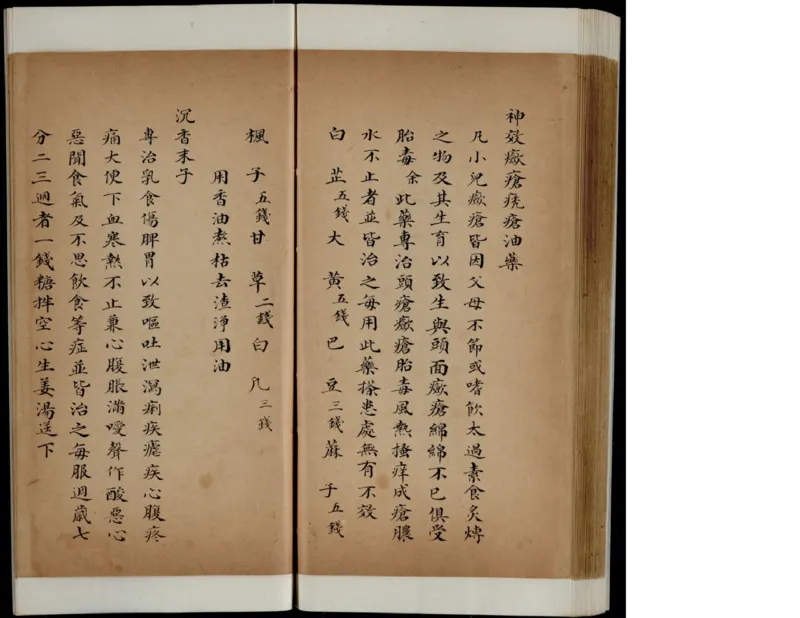 神效癜瘡疣瘡油藥
凡小兒癜瘡皆因父母不節或嗜飲太過素食炙煿
之物及其生育以致生與頭面癜瘡綿綿不已俱受
胎毒余此藥專治頭瘡癜瘡胎毒風熱搔痒成瘡膿
水不止者並皆治之每用此藥搽患處無有不效
白芷五錢大黃五錢巴豆三錢蔴子五錢
楓子五錢甘草二錢白凡三錢
用香油熬枯去渣淨用油
沉香末子
專治乳食傷脾胃以致嘔吐泄瀉痢疾瘧疾心腹疼
痛大便下血寒熱不止兼心腹脹滿噯聲作酸惡心
惡聞食氣及不思飲食等症並皆治之每服週歲七
分二三週者一錢糖拌空心生姜湯送下